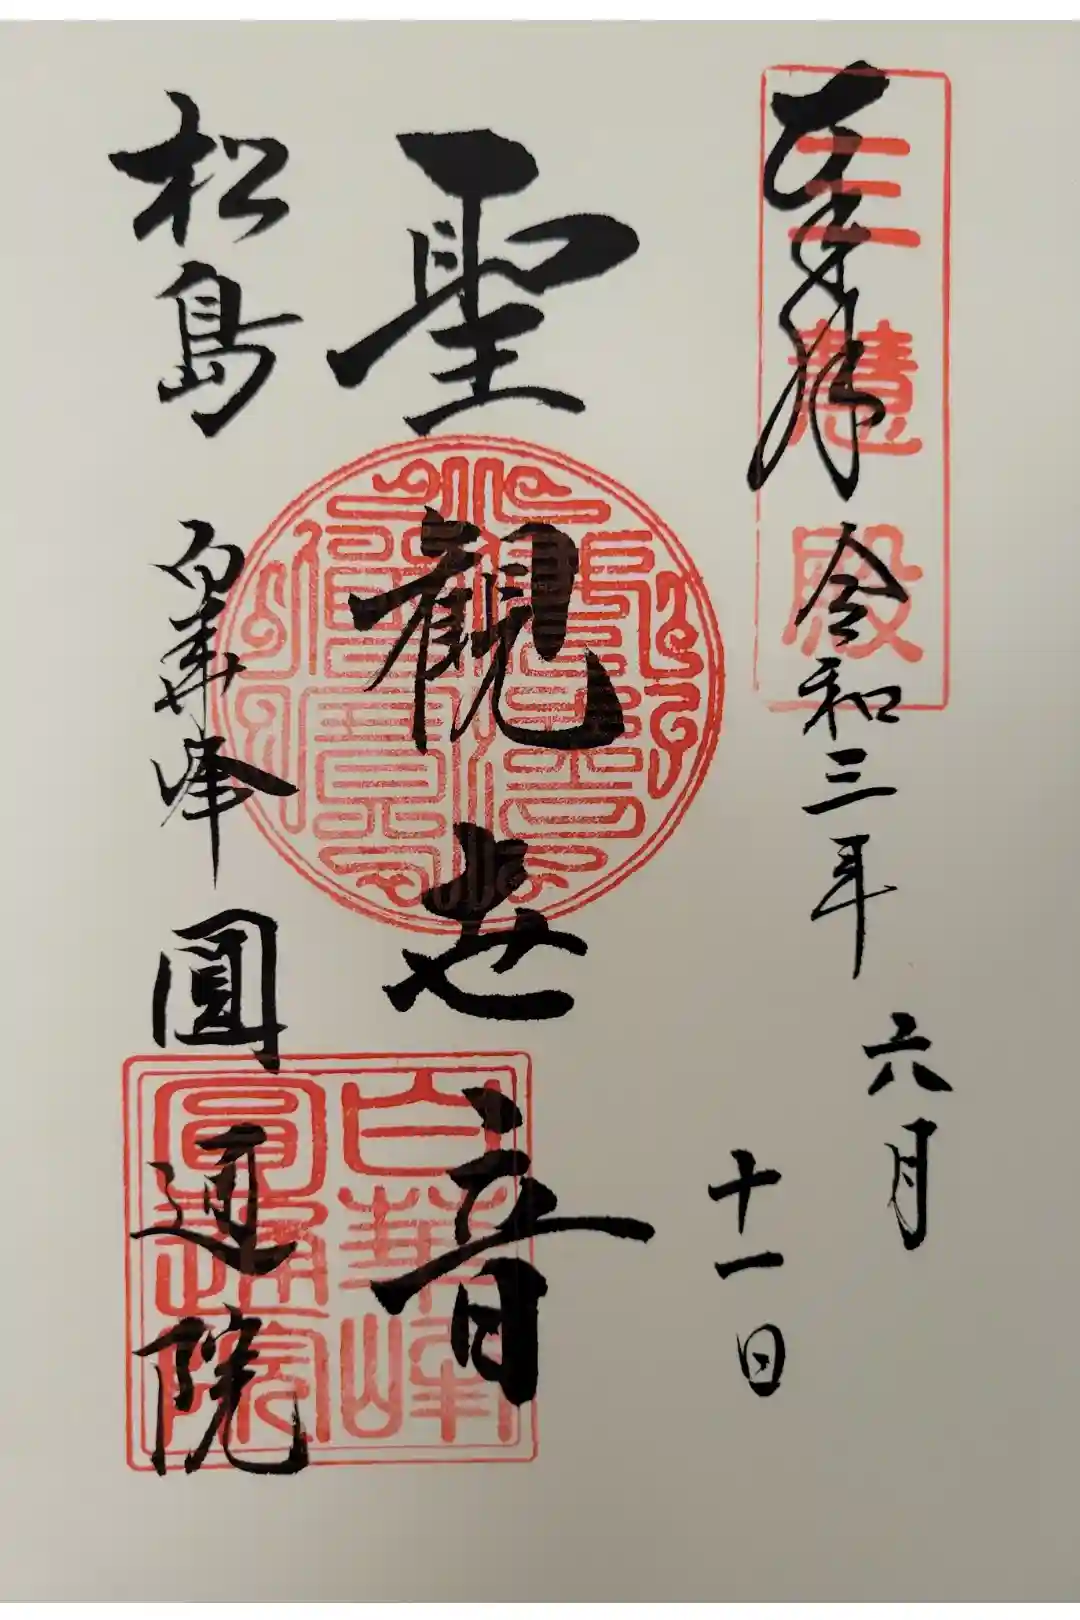 奉拝 令和三年 六月 十一日
三慧殿
聖観世音
松島 白華峰 圓通院
白華峰
圓通院